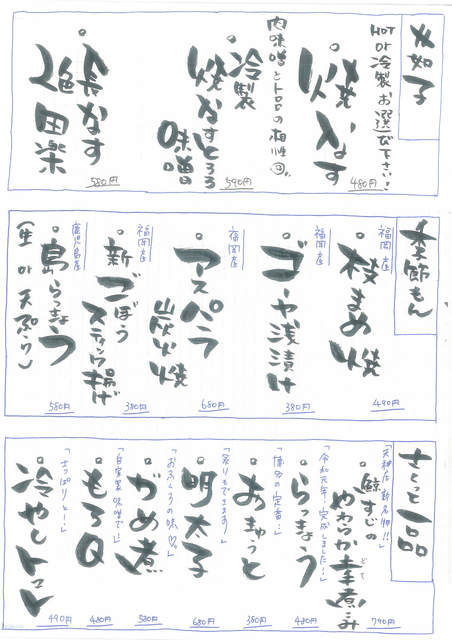 茄子
HOT or 冷製 お選び下さい!
焼なす
480円
肉味噌とトロロの相性◎!!
冷製
焼なすとろろ
味噌
590円
長なす
二色田楽
580円
季節もん
福岡産
枝まめ焼
490円
福岡産
ゴーヤ浅漬け
380円
福岡産
アスパラ
炭火焼
680円
福岡産
新ごぼう
スティック揚げ
380円
鹿児島産
島らっきょう
(生 or 天ぷら)
580円
さくっと一品
「天神店新名物!!」
鯨すじの
やわらか土手煮こみ
790円
「令和元年!完成しました!」
らっきょう
480円
「博多の定番!」
おきゅうと
380円
「炙りもできます!」
明太子
680円
「おふくろの味♡」
がめ煮
580円
「自家製味噌で!」
もろQ
480円
「さっぱりと!」
冷やしトマト
490円